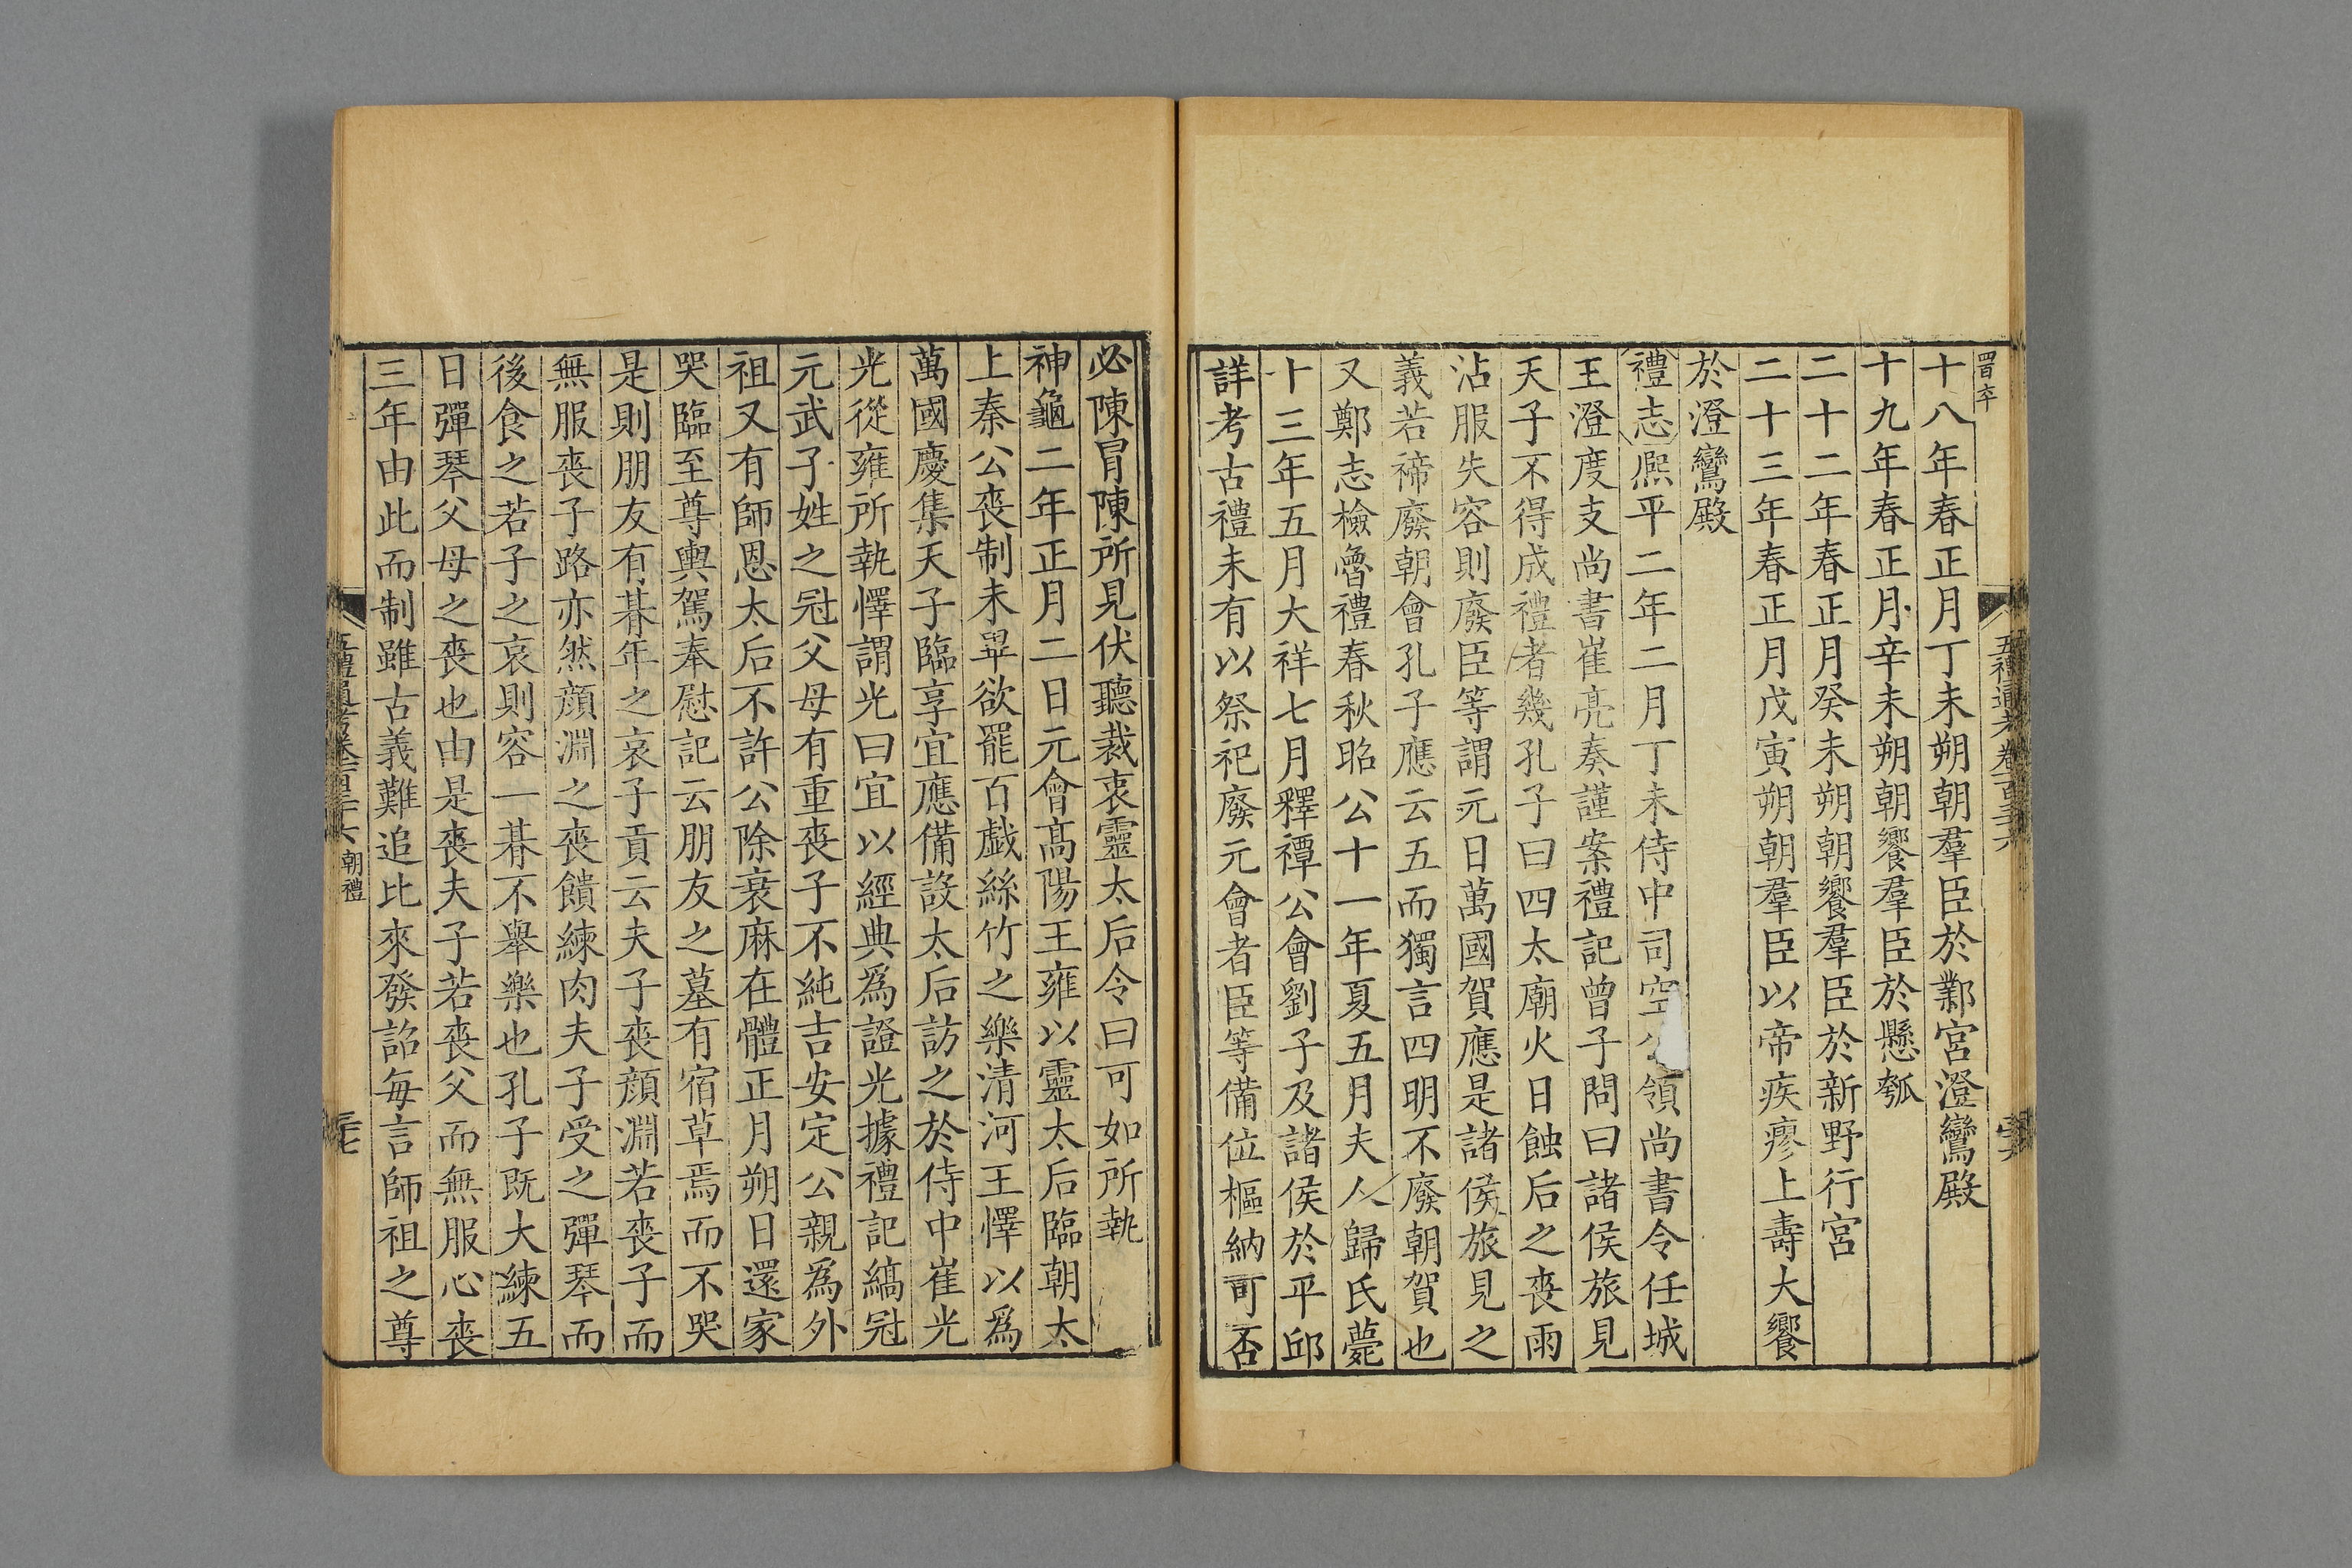 十八年春正月丁未朔朝羣臣於鄴宮澄鸞殿
十九年春正月辛未朔朝饗羣臣於懸瓠
二十二年春正月癸未朔朝饗羣臣於新野行宮
二十三年春正月戊寅朔朝羣臣以帝疾瘳上壽大饗
於澄鸞殿
禮志熈平二年二月丁未侍中司空領尚書令任城
王澄度支尚書崔亮奏謹案禮記曾子問曰諸侯旅見
天子不得成禮者幾孔子曰四太廟火日蝕后之喪雨
沾服失容則廢臣等謂元日萬國賀應是諸侯旅見之
義若禘廢朝會孔子應云五而獨言四明不廢朝賀也
又鄭志檢魯禮春秋昭公十一年夏五月夫人歸氏薨
十三年五月大祥七月釋禫公會劉子及諸侯於平邱
詳考古禮未有以祭祀廢元會者臣等備位樞納可否
必陳冒陳所見伏聽裁衷靈太后令曰可如所執
神龜二年正月二日元會高陽王雍以靈太后臨朝太
上秦公喪制未畢欲罷百戯絲竹之樂清河王懌以爲
萬國慶集天子臨享宜應備設太后訪之於侍中崔光
光從雍所執懌謂光曰宜以經典爲證光據禮記縞冠
元武子姓之冠父母有重喪子不純吉安定公親爲外
祖又有師恩太后不許公除衰麻在體正月朔日還家
哭臨至尊輿駕奉慰記云朋友之墓有宿草焉而不哭
是則朋友有朞年之哀子貢云夫子喪顔淵若喪子而
無服喪子路亦然顔淵之喪饋練肉夫子受之彈琴而
後食之若子之哀則容一朞不舉樂也孔子既大練五
日彈琴父母之喪也由是喪夫子若喪父而無服心喪
三年由此而制雖古義難追比來發詔每言師祖之尊
朝禮